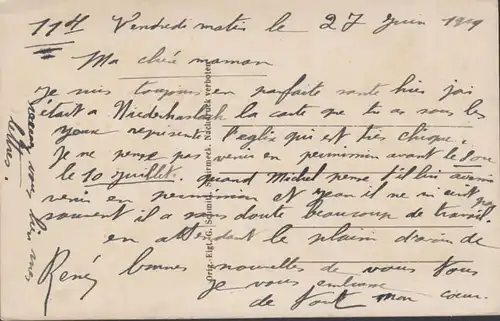 11 H Vendredi matin le 27 Juin 1919
Ma chère maman
Je suis toujours en parfaite santé hier j'ai
était à Niederhaslach la carte que tu as sous les
yeux représente l'eglise qui est très chique.
Je ne pense pas venir en permission avant le 5 ou
le 10 Juillet. Quand Michel pense t'il lui aussi
venir en permission et Jean il ne m'écrit pas
souvent il a sans doute beaucoup de travail.
en attendant le plaisir d'avoir de
bonnes nouvelles de vous tous
je vous embrasse
de tout mon coeur.
René
lettres.
Orig.-Eigt. G. Schmidt, Schirmeck. Nachdruck verboten